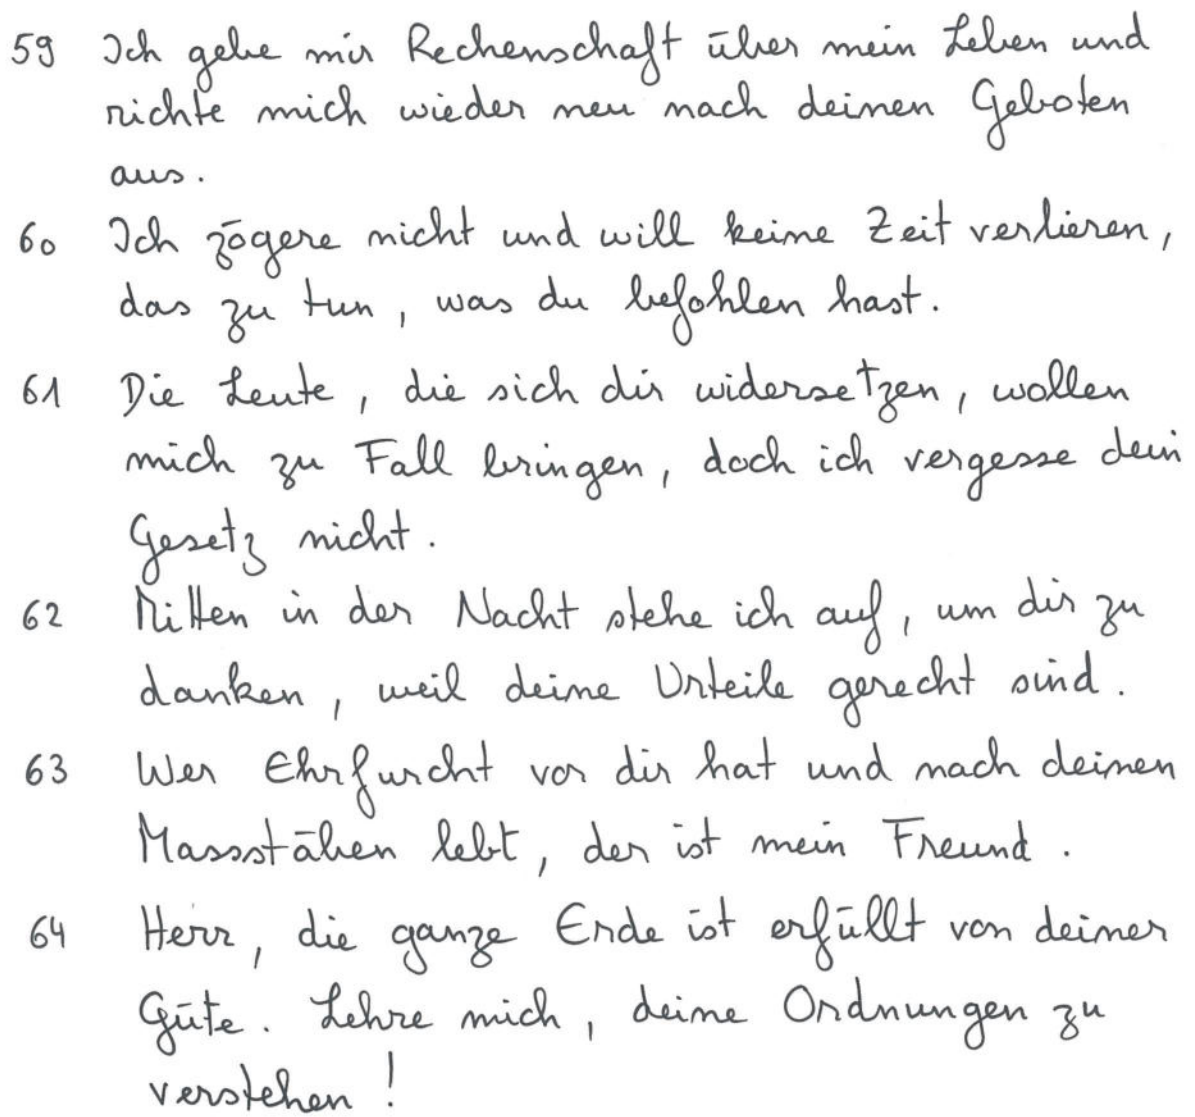 59 Ich gebe mir Rechenschaft über mein Leben und
richte mich wieder neu nach deinen Geboten
aus.
60 Ich zögere nicht und will keine Zeit verlieren,
das zu tun, was du befohlen hast.
61 Die Leute, die sich dir widersetzen, wollen
mich zu Fall bringen, doch ich vergesse dein
Gesetz nicht.
62 Mitten in der Nacht stehe ich auf, um dir zu
danken, weil deine Urteile gerecht sind.
63 Wer Ehrfurcht vor dir hat und nach deinen
Massstäben lebt, der ist mein Freund.
64 Herr, die ganze Erde ist erfüllt von deiner
Güte. Lehre mich, deine Ordnungen zu
verstehen!